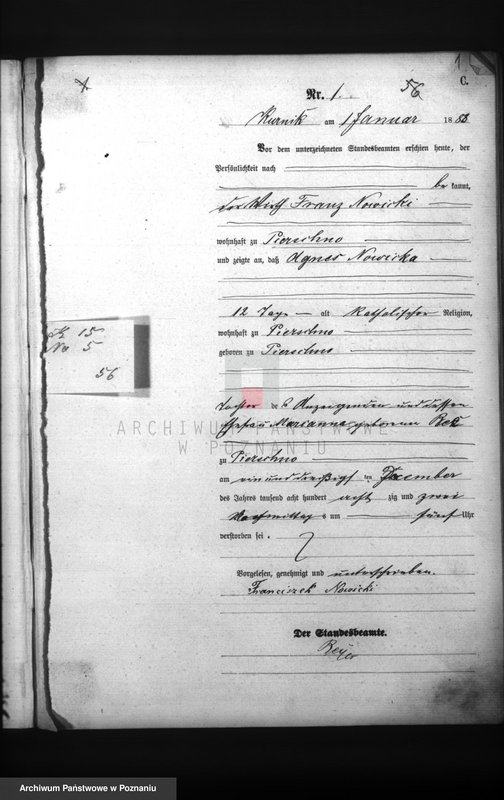 1
C.
Nr. 1.
56
Kurnik am 1 Januar 1883.
Vor dem unterzeichneten Standesbeamten erschien heute, der
Persönlichkeit nach
be kannt,
der Wirth Franz Nowicki
wohnhaft zu Pierschno
und zeigte an, daß Agnes Nowicka
12 Tage alt katholischer Religion,
wohnhaft zu Pierschno
geboren zu Pierschno
Tochter des Anzeigenden und dessen
Ehefrau Marianna geborenen
zu Pierschno
am einunddreißigsten Dezember
des Jahres tausend acht hundert acht zig und zwei
Nachmittags um fünf Uhr
verstorben sei.
Vorgelesen, genehmigt und unterschrieben.
Franciszek Nowicki
Der Standesbeamte.
15
No 5
56
ARCHIWUM PAŃSTWOWE
W POZNANIU
Archiwum Państwowe w Poznaniu